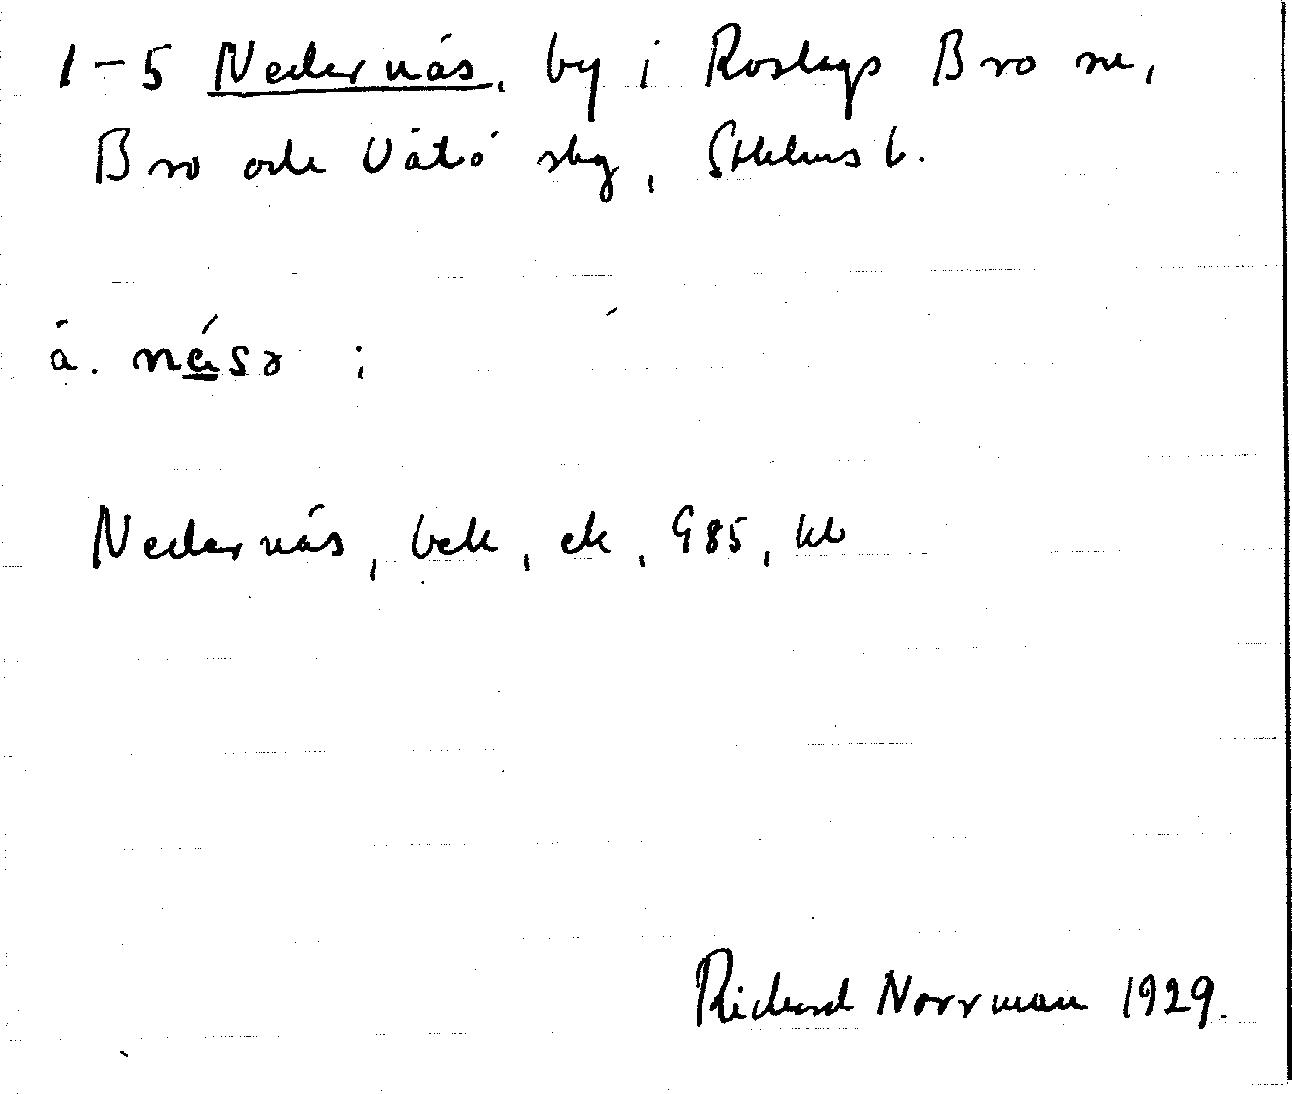 1-5 Nedernäs, by i Roslags Bro sn,
Bro och Vätö skg, Sthlms l.
Nedernäs, bek, ek, G85, kb
Richard Norrman 1929.